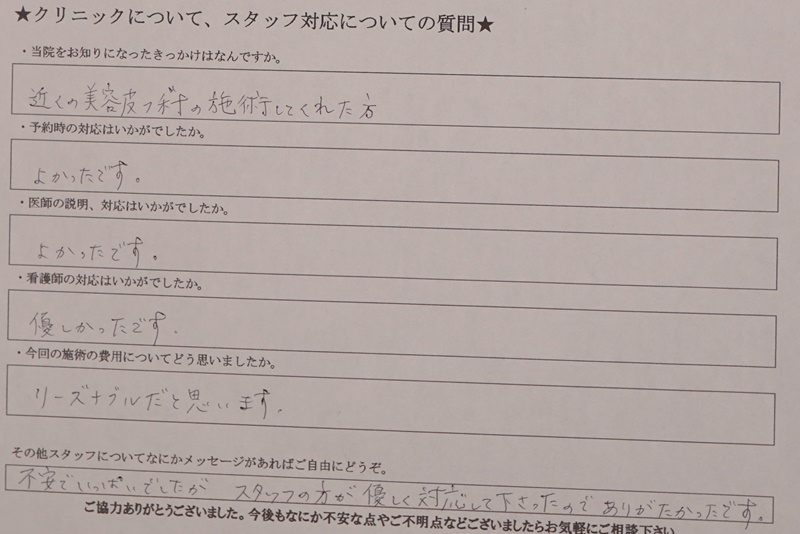 ★クリニックについて、スタッフ対応についての質問★
・当院をお知りになったきっかけはなんですか。
近くの美容皮フ科の施術してくれた方
・予約時の対応はいかがでしたか。
よかったです。
・医師の説明、対応はいかがでしたか。
よかったです。
・看護師の対応はいかがでしたか。
優しかったです。
・今回の施術の費用についてどう思いましたか。
リーズナブルだと思います。
その他スタッフについてなにかメッセージがあればご自由にどうぞ。
不安でいっぱいでしたが スタッフの方が優しく対応して下さったのでありがたかったです。
ご協力ありがとうございました。今後もなにか不安な点やご不明点などございましたらお気軽にご相談下さい